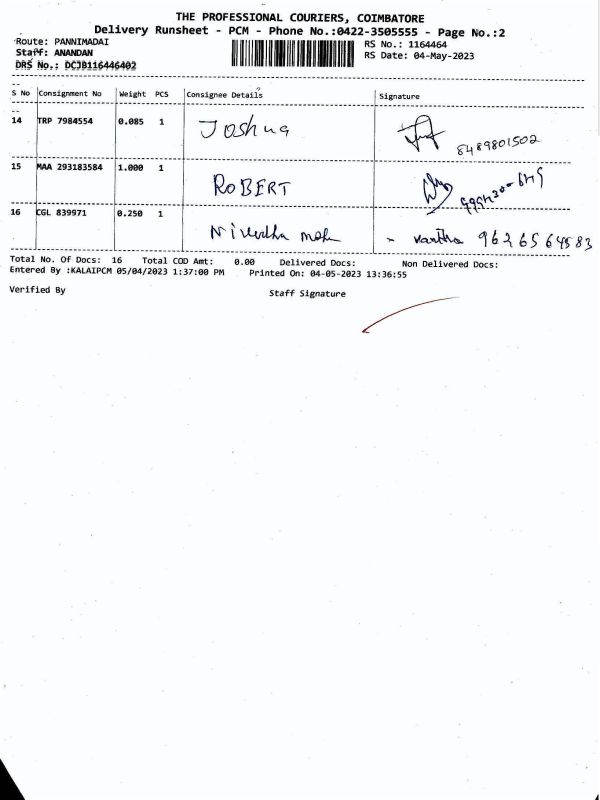 THE PROFESSIONAL COURIERS, COIMBATORE
Delivery Runsheet - PCM - Phone No.:0422-3505555 - Page No.:2
Route: PANNIMADAI
RS No.: 1164464
Staff: ANANDAN
RS Date: 04-May-2023
DRS No.: DCJB116446402
S No Consignment No Weight PCS Consignee Details Signature
14 TRP 7984554 0.085 1 Joshua 8489801502
15 MAA 293183584 1.000 1 ROBERT
16 CGL 839971 0.250 1 - 9626564583
Total No. Of Docs: 16 Total COD Amt: 0.00 Delivered Docs: Non Delivered Docs:
Entered By :KALAIPCM 05/04/2023 1:37:00 PM Printed On: 04-05-2023 13:36:55
Verified By Staff Signature